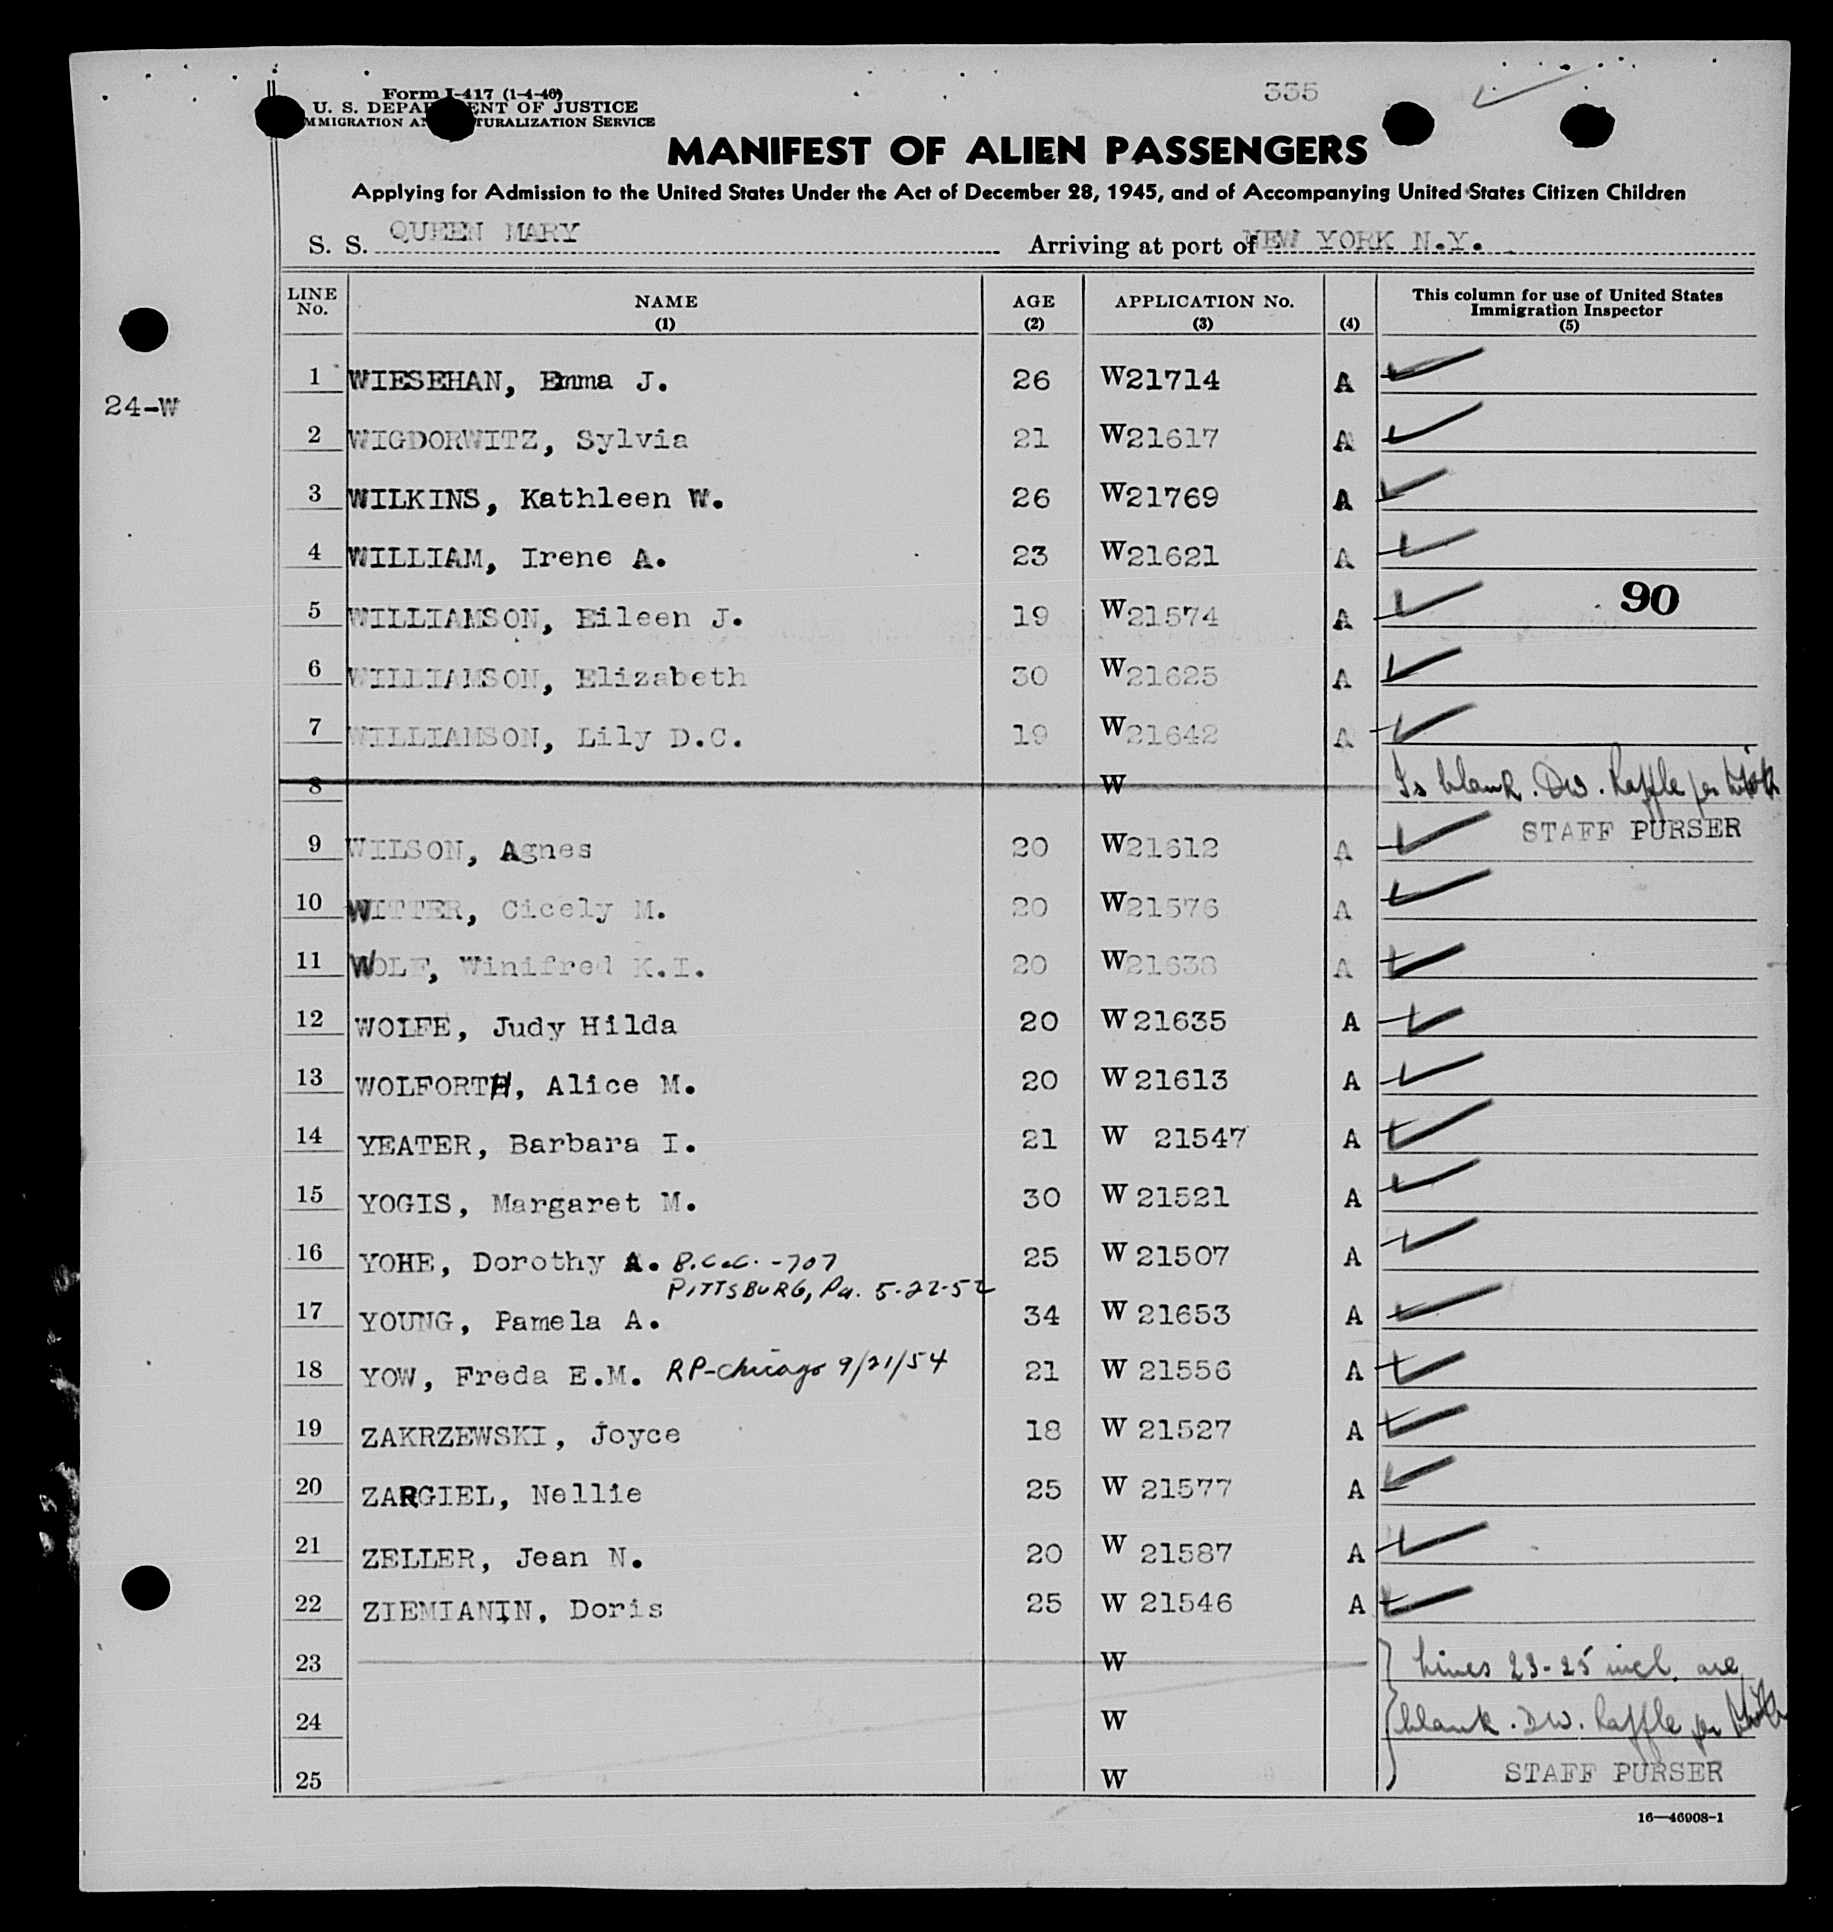 335
Form I-417 (1-4-46)
U. S. DEPA ENT OF JUSTICE
MMIGRATION AN TURALIZATION SERVICE
MANIFEST OF ALIEN PASSENGERS
Applying for Admission to the United States Under the Act of December 28, 1945, and of Accompanying United States Citizen Children
S. S. QUEEN MARY Arriving at port of NEW YORK N.Y.
LINE No. NAME (1) AGE (2) APPLICATION No. (3) (4) This column for use of United States Immigration Inspector (5)
24-W
1 WIESEHAN, Emma J. 26 W21714 A
2 WIGDORWITZ, Sylvia 21 W21617 A
3 WILKINS, Kathleen W. 26 W21769 A
4 WILLIAM, Irene A. 23 W21621 A
5 WILLIAMSON, Eileen J. 19 W21574 A 90
6 WILLIAMSON, Elizabeth 30 W21625 A
7 WILLIAMSON, Lily D.C. 19 W21642 A
8 W Is blank. DW. Raffle per
STAFF PURSER
9 WILSON, Agnes 20 W21612 A
10 WITTER, Cicely M. 20 W21576 A
11 WOLF, Winifred K.I. 20 W21638 A
12 WOLFE, Judy Hilda 20 W21635 A
13 WOLFORTH, Alice M. 20 W21613 A
14 YEATER, Barbara I. 21 W 21547 A
15 YOGIS, Margaret M. 30 W 21521 A
16 YOHE, Dorothy A. B.C.C. -707 25 W 21507 A
PITTSBURG, Pa. 5-22-52
17 YOUNG, Pamela A. 34 W 21653 A
18 YOW, Freda E.M. RP-Chicago 9/21/54 21 W 21556 A
19 ZAKRZEWSKI, Joyce 18 W 21527 A
20 ZARGIEL, Nellie 25 W 21577 A
21 ZELLER, Jean N. 20 W 21587 A
22 ZIEMIANIN, Doris 25 W 21546 A
23 W Lines 23-25 incl. are
24 W blank. DW. Raffle per
25 W STAFF PURSER
16—46908-1